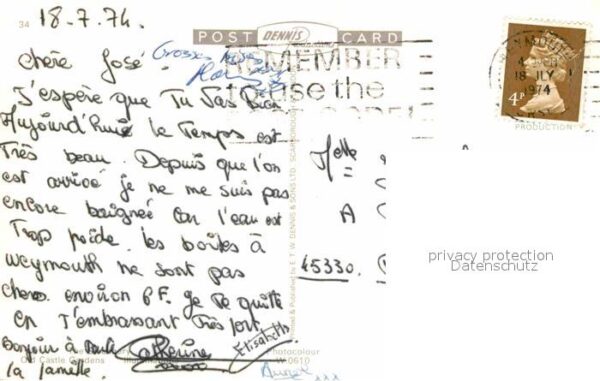 34
18-7-74.
POST DENNIS CARD
Chère José.
Grosses bises
REMEMBER
to use the
WEYMOUTH
18 JLY
1974
4P
PRODUCTION
J'espère que Tu Vas Bien
Aujourd'hui le Temps est
Très beau. Depuis que l'on
est arrivé je ne me suis pas
encore baignée car l'eau est
Trop froide. les boîtes à
weymouth ne sont pas
chers. environ 6 F. je Te quitte
en T'embrassant Très fort.
Bonjour à
la famille.
Catherine
Elisabeth
Melle
A
45330.
privacy protection
Datenschutz
Old Castle Gardens
Photocolour
W.0610
Printed & Published by E. T. W. DENNIS & SONS LTD. SCARBOROUGH
xxx